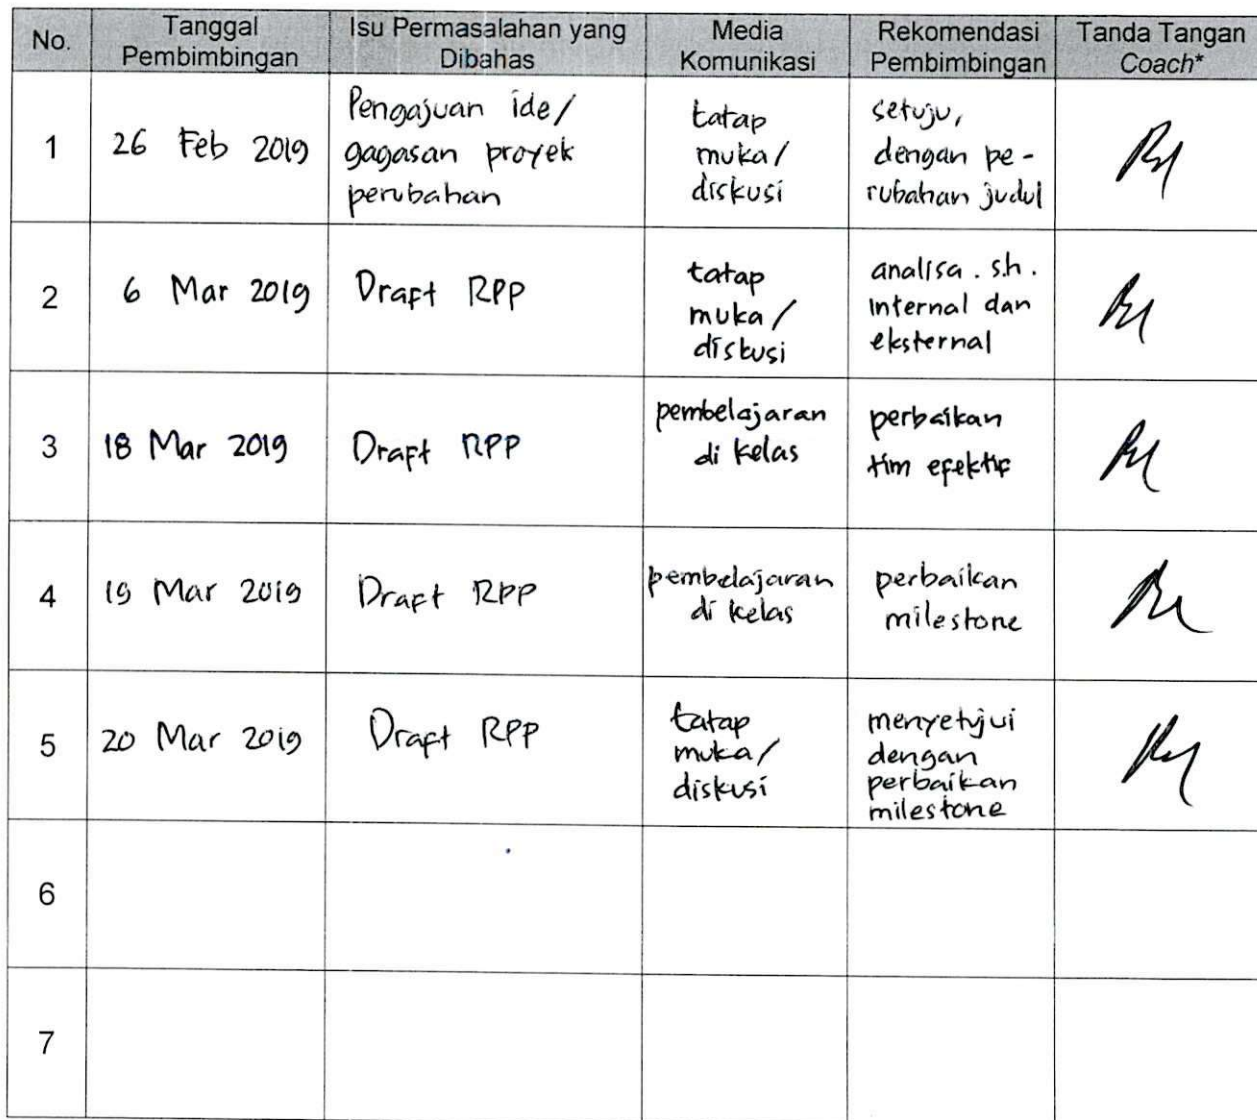 No.
Tanggal
Pembimbingan
Isu Permasalahan yang
Dibahas
Media
Komunikasi
Rekomendasi
Pembimbingan
Tanda Tangan
Coach*
1
26 Feb 2019
Pengajuan ide/
gagasan proyek
perubahan
tatap
muka/
diskusi
setuju,
dengan pe-
rubahan judul
2
6 Mar 2019
Draft RPP
tatap
muka/
diskusi
analisa. s.h.
internal dan
eksternal
3
18 Mar 2019
Draft RPP
pembelajaran
di kelas
perbaikan
tim efektif
4
19 Mar 2019
Draft RPP
pembelajaran
di kelas
perbaikan
milestone
5
20 Mar 2019
Draft RPP
tatap
muka/
diskusi
menyetujui
dengan
perbaikan
milestone
6
7